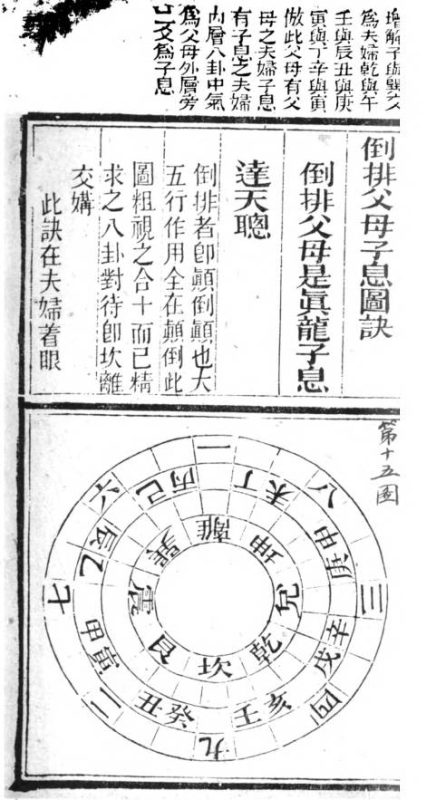 增解子與巽交
為夫婦乾與午
壬與辰丑與庚
寅與丁辛與寅
倣此父母有父
母之夫婦子息
有子息之夫婦
內層八卦中氣
為父母外層旁
爻為子息
倒排父母子息圖訣
倒排父母是眞龍子息
達天聰
倒排者卽顛倒顛也大
五行作用全在顛倒此
圖粗視之合十而已精
求之八卦對待卽坎離
交媾
此訣在夫婦着眼
第十五圖
一
八
三
四
九
二
七
六
丙巳
丁未
庚申
辛戌
壬亥
癸丑
甲寅
乙辰
離
坤
兌
乾
坎
艮
震
巽